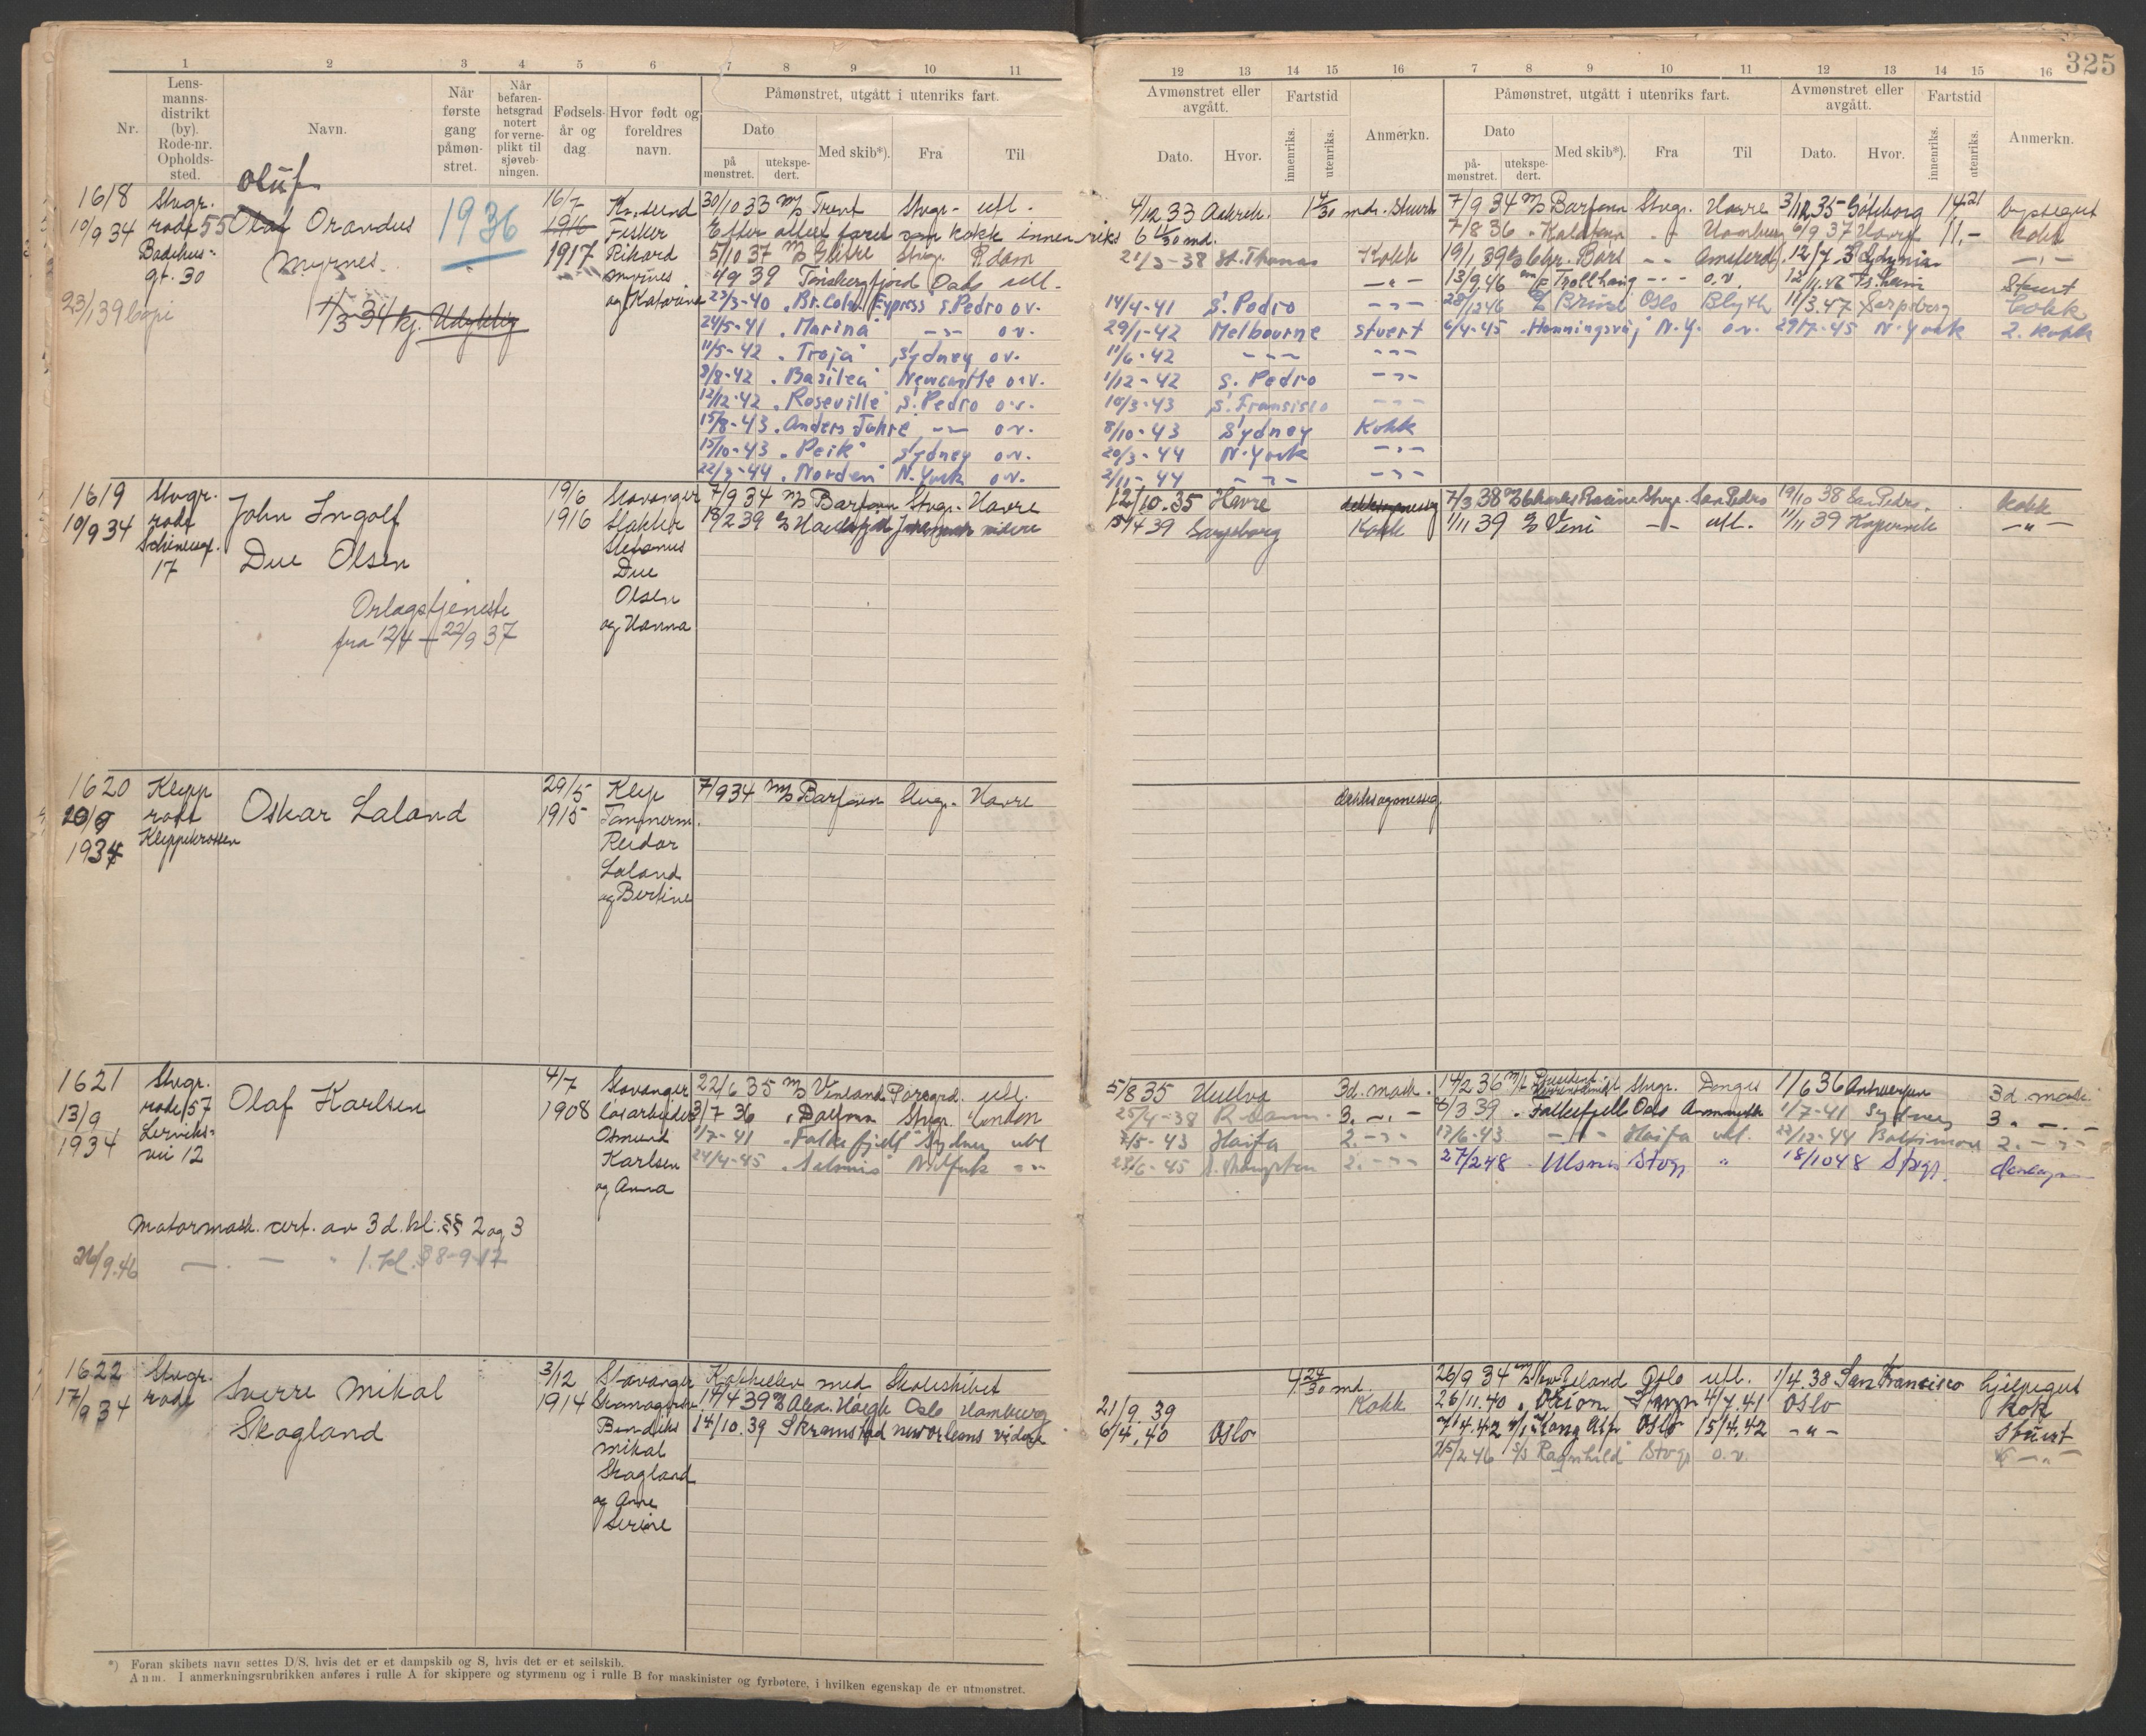 325
1 2 3 4 5 6 7 8 9 10 11
Nr.
Lens-
manns-
distrikt
(by).
Rode-nr.
Opholds-
sted.
Navn.
Når
første
gang
påmøn-
stret.
Når
befaren-
hetsgrad
notert
for verne-
plikt til
sjøveb-
ningen.
Fødsels-
år og
dag
Hvor født og
foreldres
navn.
Påmønstret, utgått i utenriks fart.
Dato
på
mønstret.
utekspe-
dert.
Med skib*).
Fra
Til
12 13 14 15 16 7 8 9 10 11 12 13 14 15 16
Avmønstret eller
avgått.
Dato.
Hvor.
Fartstid
innenriks.
utenriks.
Anmerkn.
Påmønstret, utgått i utenriks fart.
Dato
på-
mønstret.
utekspe-
dert.
Med skib*).
Fra
Til
Avmønstret eller
avgått.
Dato.
Hvor.
Fartstid
innenriks.
utenriks.
Anmerkn.
1618
10/9 34
23/1 39
Stvgr.
rode 55
Badehus-
gt. 30
Oluf
Olaf Orandus
Myrnes
1936
16/7
1916
1917
Kr.sund
Fisker
Rikard
Myrnes
og Katarina
30/10 33 M/S Trent Stvgr. utl.
Efter attest faret som kokk innenriks 6 11/30 md.
5/10 37 M/S Glitre Stvgr. R.dam
4 9 39 Tønsbergfjord Oslo utl.
23/3-40 "Br. Colu. Express" S. Pedro o.v.
24/5-41 "Marina" -"- o.v.
11/5-42 "Troja" Sydney o.v.
8/8-42 "Basilea" Newcastle o.v.
12/12-42 "Roseville" S. Pedro o.v.
15/8-43 "Anders Jahre" -"- o.v.
15/10-43 "Peik" Sydney o.v.
22/3-44 "Norden" N. York o.v.
4/12 33
21/3-38 St. Thomas Kokk
14/4-41 S. Pedro -"-
29/1-42 Melbourne stuert
11/6-42 -"- -"-
1/12-42 S. Pedro -"-
10/3-43 S. Fransisco -"-
8/10-43 Sydney Kokk
20/3-44 N. York -"-
2/11-44 -"- -"-
7/9 34 M/S Barfonn Stvgr. Havre 3/12 35 Göteborg 14 21 byssegut
7/8 36 Hamburg 6/9 37 Havre 11,- kokk
19/1 39 Chr. Bors -"- Amsterd. 12/7 Gdynia -"-
13/9.46 Trollhaug -"- o.v. Stuert
28/12 46 Bruse Oslo Blyth 11/3.47 Sarpsborg Kokk
6/4-45 "Honningsvåg" N.Y. o.v. 29/7-45 N. York 2. kokk
1619
10/9 34
Stvgr.
rode
17
John Ingolf
Due Olsen
Orlogstjeneste
fra 12/4 - 22/9 37
19/6
1916
Stavanger
Slakter
Stefanus
Due
Olsen
og Hanna
7/9 34 M/S Barfonn Stvgr. Havre
18/2 39
12/10.35 Havre
15/4 39 Sarpsborg Kokk
7/3 38 Charles Racine Stvgr. San Pedro 19/10 38 San Pedro Kokk
1/11 39 Veni -"- utl. 11/11 39 Kopervik -"-
1620
20/9
1934
Klepp
rode
Kleppekrossen
Oskar Laland
29/5
1915
Klep
Tømmerm.
Reidar
Laland
og Bertine
7/9 34 M/S Barfonn Stvgr. Havre
1621
13/9
1934
Stvgr.
rode 57
Lerviks-
vei 12
Olaf Karlsen
Motormask. cert. av 3 d. kl. §§ 2 og 3
26/9.46 - - " 1. kl. § 8-9-12
4/7
1908
Stavanger
Løsarbeider
Osmund
Karlsen
og Anna
22/6 35 M/S Vinland Porsgrd. utl.
3/7 36 Stvgr. London
1/7-41 "Falkefjell" Sydney utl
24/4-45 Norfolk -"-
5/8 35 Huelva 3d. mask.
25/4-38 3. -"-
7/5-43 Haifa 2. -"-
23/6-45 2. -"-
14/2 36 Stvgr. 1/6 36 Antwerpen 3d. mask.
4/3 39 Falkefjell Oslo 1/7-41 Sydney 3. -"-
17/6-43 -"- Haifa utl. 27/12-44 Baltimore 2. -"-
27/2 48 Ulsnes Stvgr " 18/10 48 Stvgr.
1622
17/9 34
Stvgr.
rode
Sverre Mikal
Skogland
3/12
1914
Stavanger
Bendiks
Mikal
Skogland
og Anne
Serine
Kokkelev med Skoleskibet
14/4 39 Oslo Hamburg
14/10.39 Skramstad New Orleans videre
4 24/30 md.
21/9 39 Kokk
6/4.40 Oslo
26/9 34 Oslo utl. 1/4.38 San Francisco hjelpegut
26/11.40 "Orion" 4/7.41 Oslo Kok
7/4.42 Kong Alf Oslo 15/4.42 -"- Stuert
25/2 46 S/S Ragnhild Stvgr o.v. -"-
*) Foran skibets navn settes D/S, hvis det er et dampskib og S, hvis det er et seilskib.
Anm. I anmerkningsrubrikken anføres i rulle A for skippere og styrmenn og i rulle B for maskinister og fyrbøtere, i hvilken egenskap de er utmønstret.